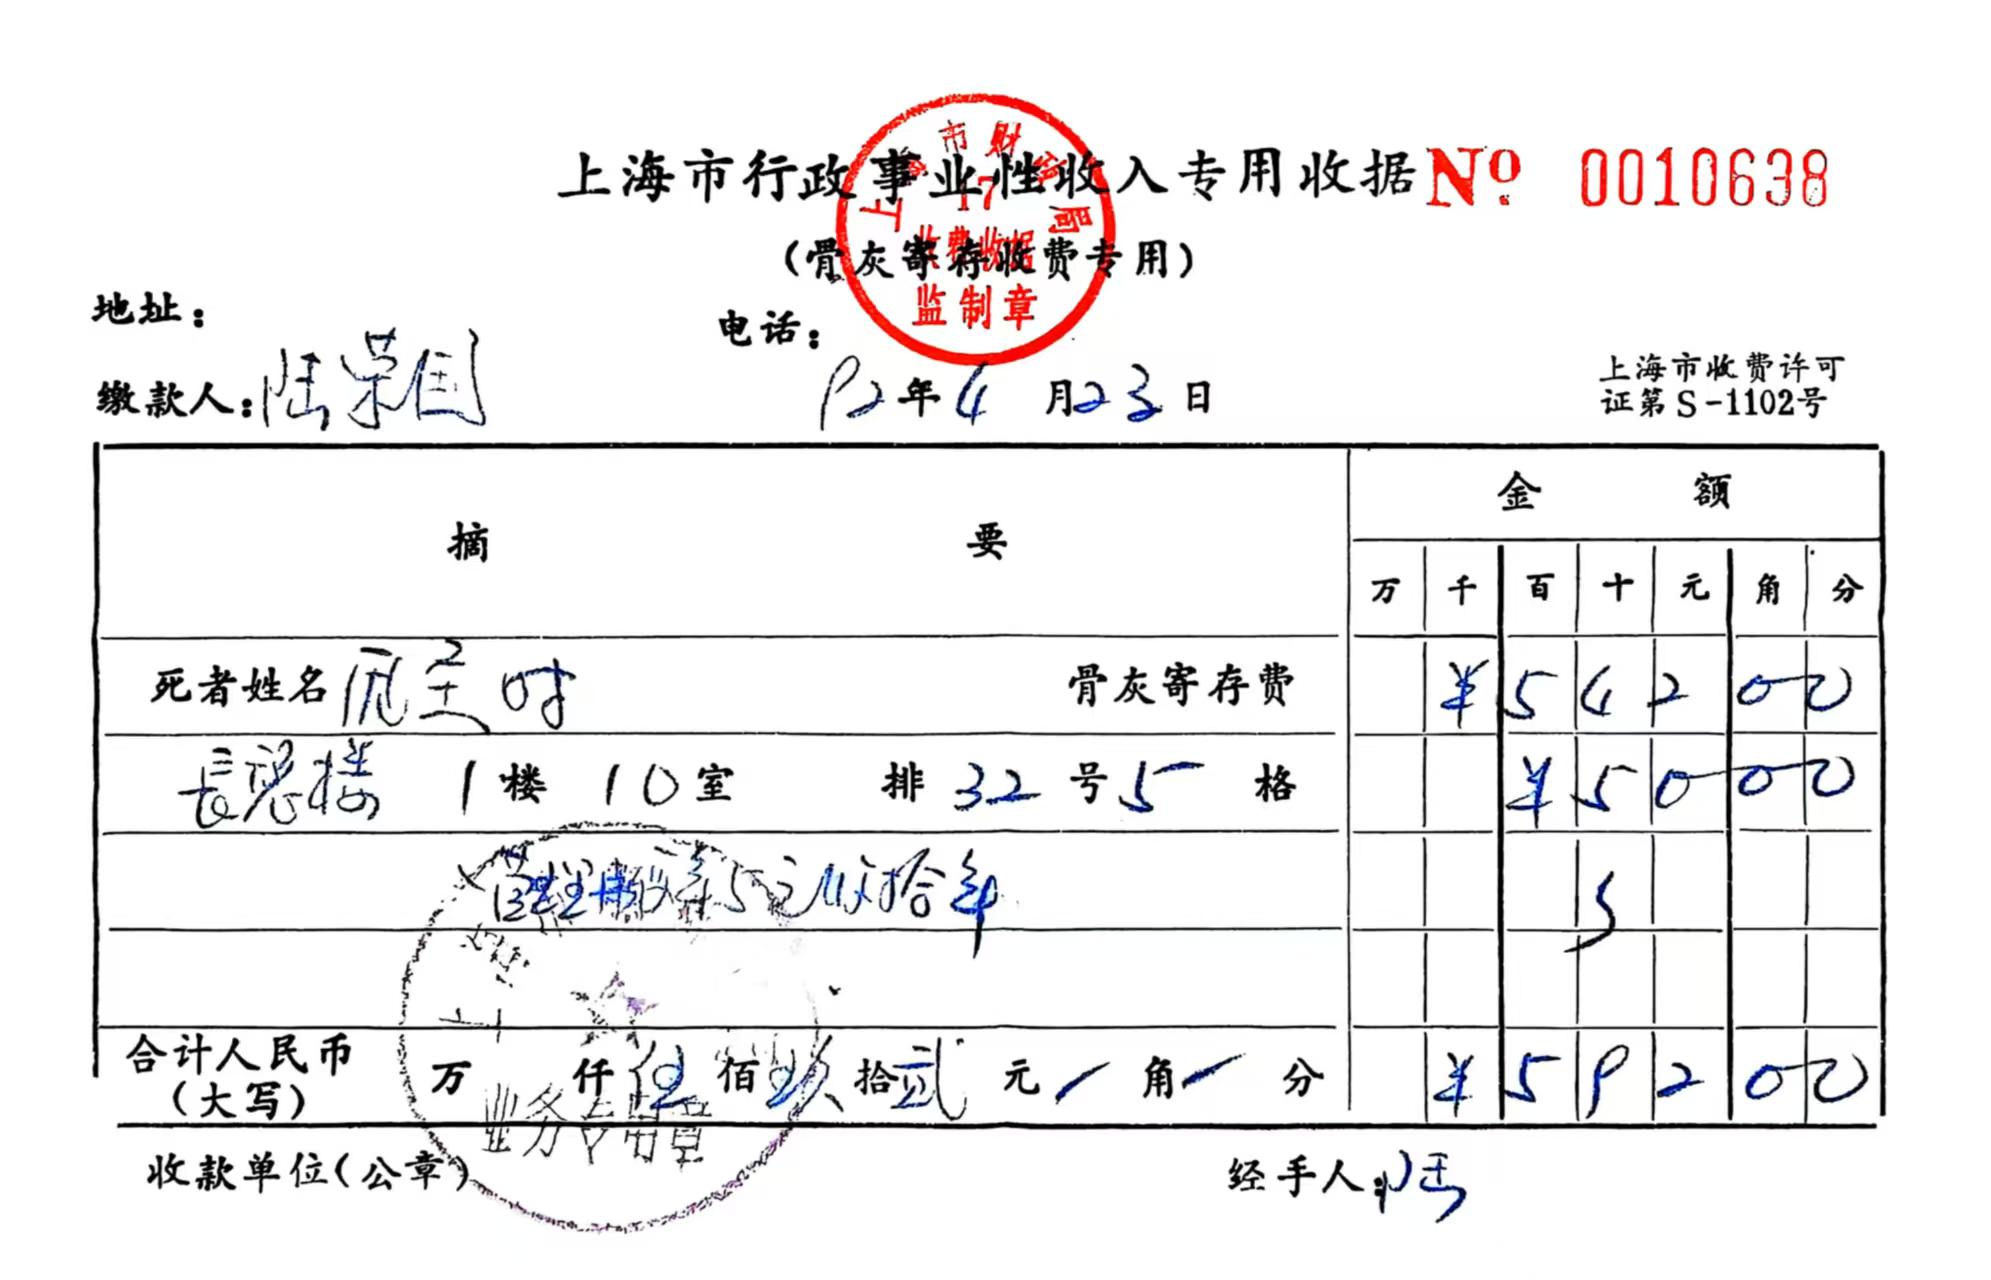 上海市行政事业性收入专用收据 No 0010638
上海市财政局
17
收费收据
监制章
(骨灰寄存收费专用)
地址: 电话:
缴款人: 陆荣国 92年4月23日
上海市收费许可
证第S-1102号
摘要 金额
万 千 百 十 元 角 分
死者姓名 骨灰寄存费 ¥54200
1楼 10室 排32号5格 ¥5000
管理费每年5元收拾年
合计人民币 万 仟伍佰玖拾贰元/角/分 ¥59200
(大写)
业务专用章
收款单位(公章) 经手人: 陆